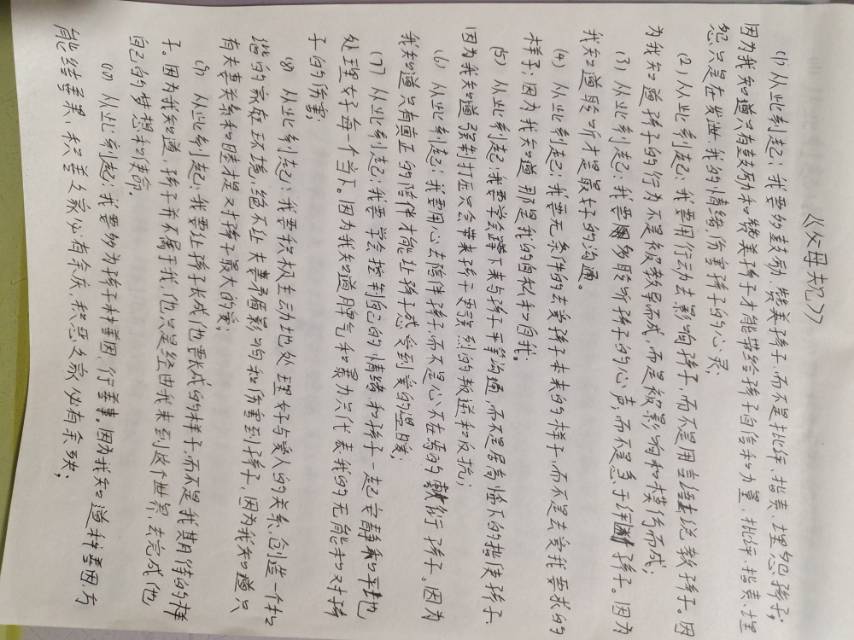 《父母规》
(1) 从此刻起: 我要多鼓励、赞美孩子, 而不是批评、指责、埋怨孩子;
因为我知道只有鼓励和赞美孩子才能带给孩子自信和力量, 批评、指责、埋
怨只是在发泄我的情绪, 伤害孩子的心灵;
(2) 从此刻起: 我要用行动去影响孩子, 而不是用言语去说教孩子。因
为我知道孩子的行为不是被教导而成, 而是被影响和模仿而成;
(3) 从此刻起: 我要多聆听孩子的心声, 而不是急于评断孩子。因为
我知道聆听才是最好的沟通。
(4) 从此刻起: 我要无条件的去爱孩子本来的样子, 而不是去爱我要求的
样子; 因为我知道那是我的自私和自我。
(5) 从此刻起: 我要学会蹲下来与孩子平等沟通, 而不是居高临下的指使孩子
因为我知道强制打压只会带来孩子更强烈的叛逆和反抗;
(6) 从此刻起: 我要用心去陪伴孩子, 而不是心不在焉的敷衍孩子。因为
我知道只有真正的陪伴才能让孩子感受到爱的温暖;
(7) 从此刻起: 我要学会控制自己的情绪, 和孩子一起安静和平地
处理好每个当下。因为我知道脾气和暴力只代表我的无能和对孩
子的伤害;
(8) 从此刻起: 我要积极主动地处理好与爱人的关系, 创造一个和
谐的家庭环境, 绝不让夫妻矛盾影响和伤害到孩子, 因为我知道只
有夫妻关系和睦才是对孩子最大的爱;
(9) 从此刻起: 我要让孩子长成他要长成的样子, 而不是我期待的样
子。因为我知道, 孩子并不属于我, 他只是经由我来到这个世界, 去完成他
自己的梦想和使命。
(10) 从此刻起: 我要多为孩子种善因、行善事。因为我知道种善因方
能结善果, 积善之家必有余庆, 积恶之家必有余殃;